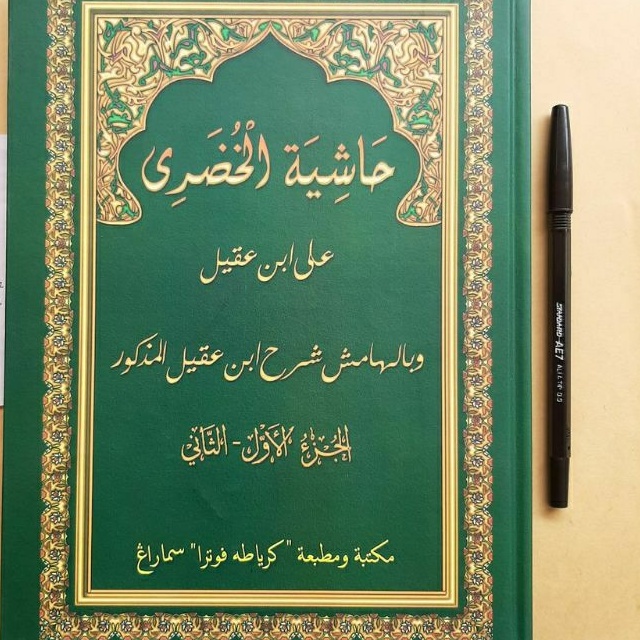 حَاشِيَة الْخُضَرِى
على ابن عقيل
وبالهامش شرح ابن عقيل المذكور
الجُزءُ الأَوّل - الثَّاني
مكتبة ومطبعة "كرياطه فوترا" سماراڠ
STANDARD AE7